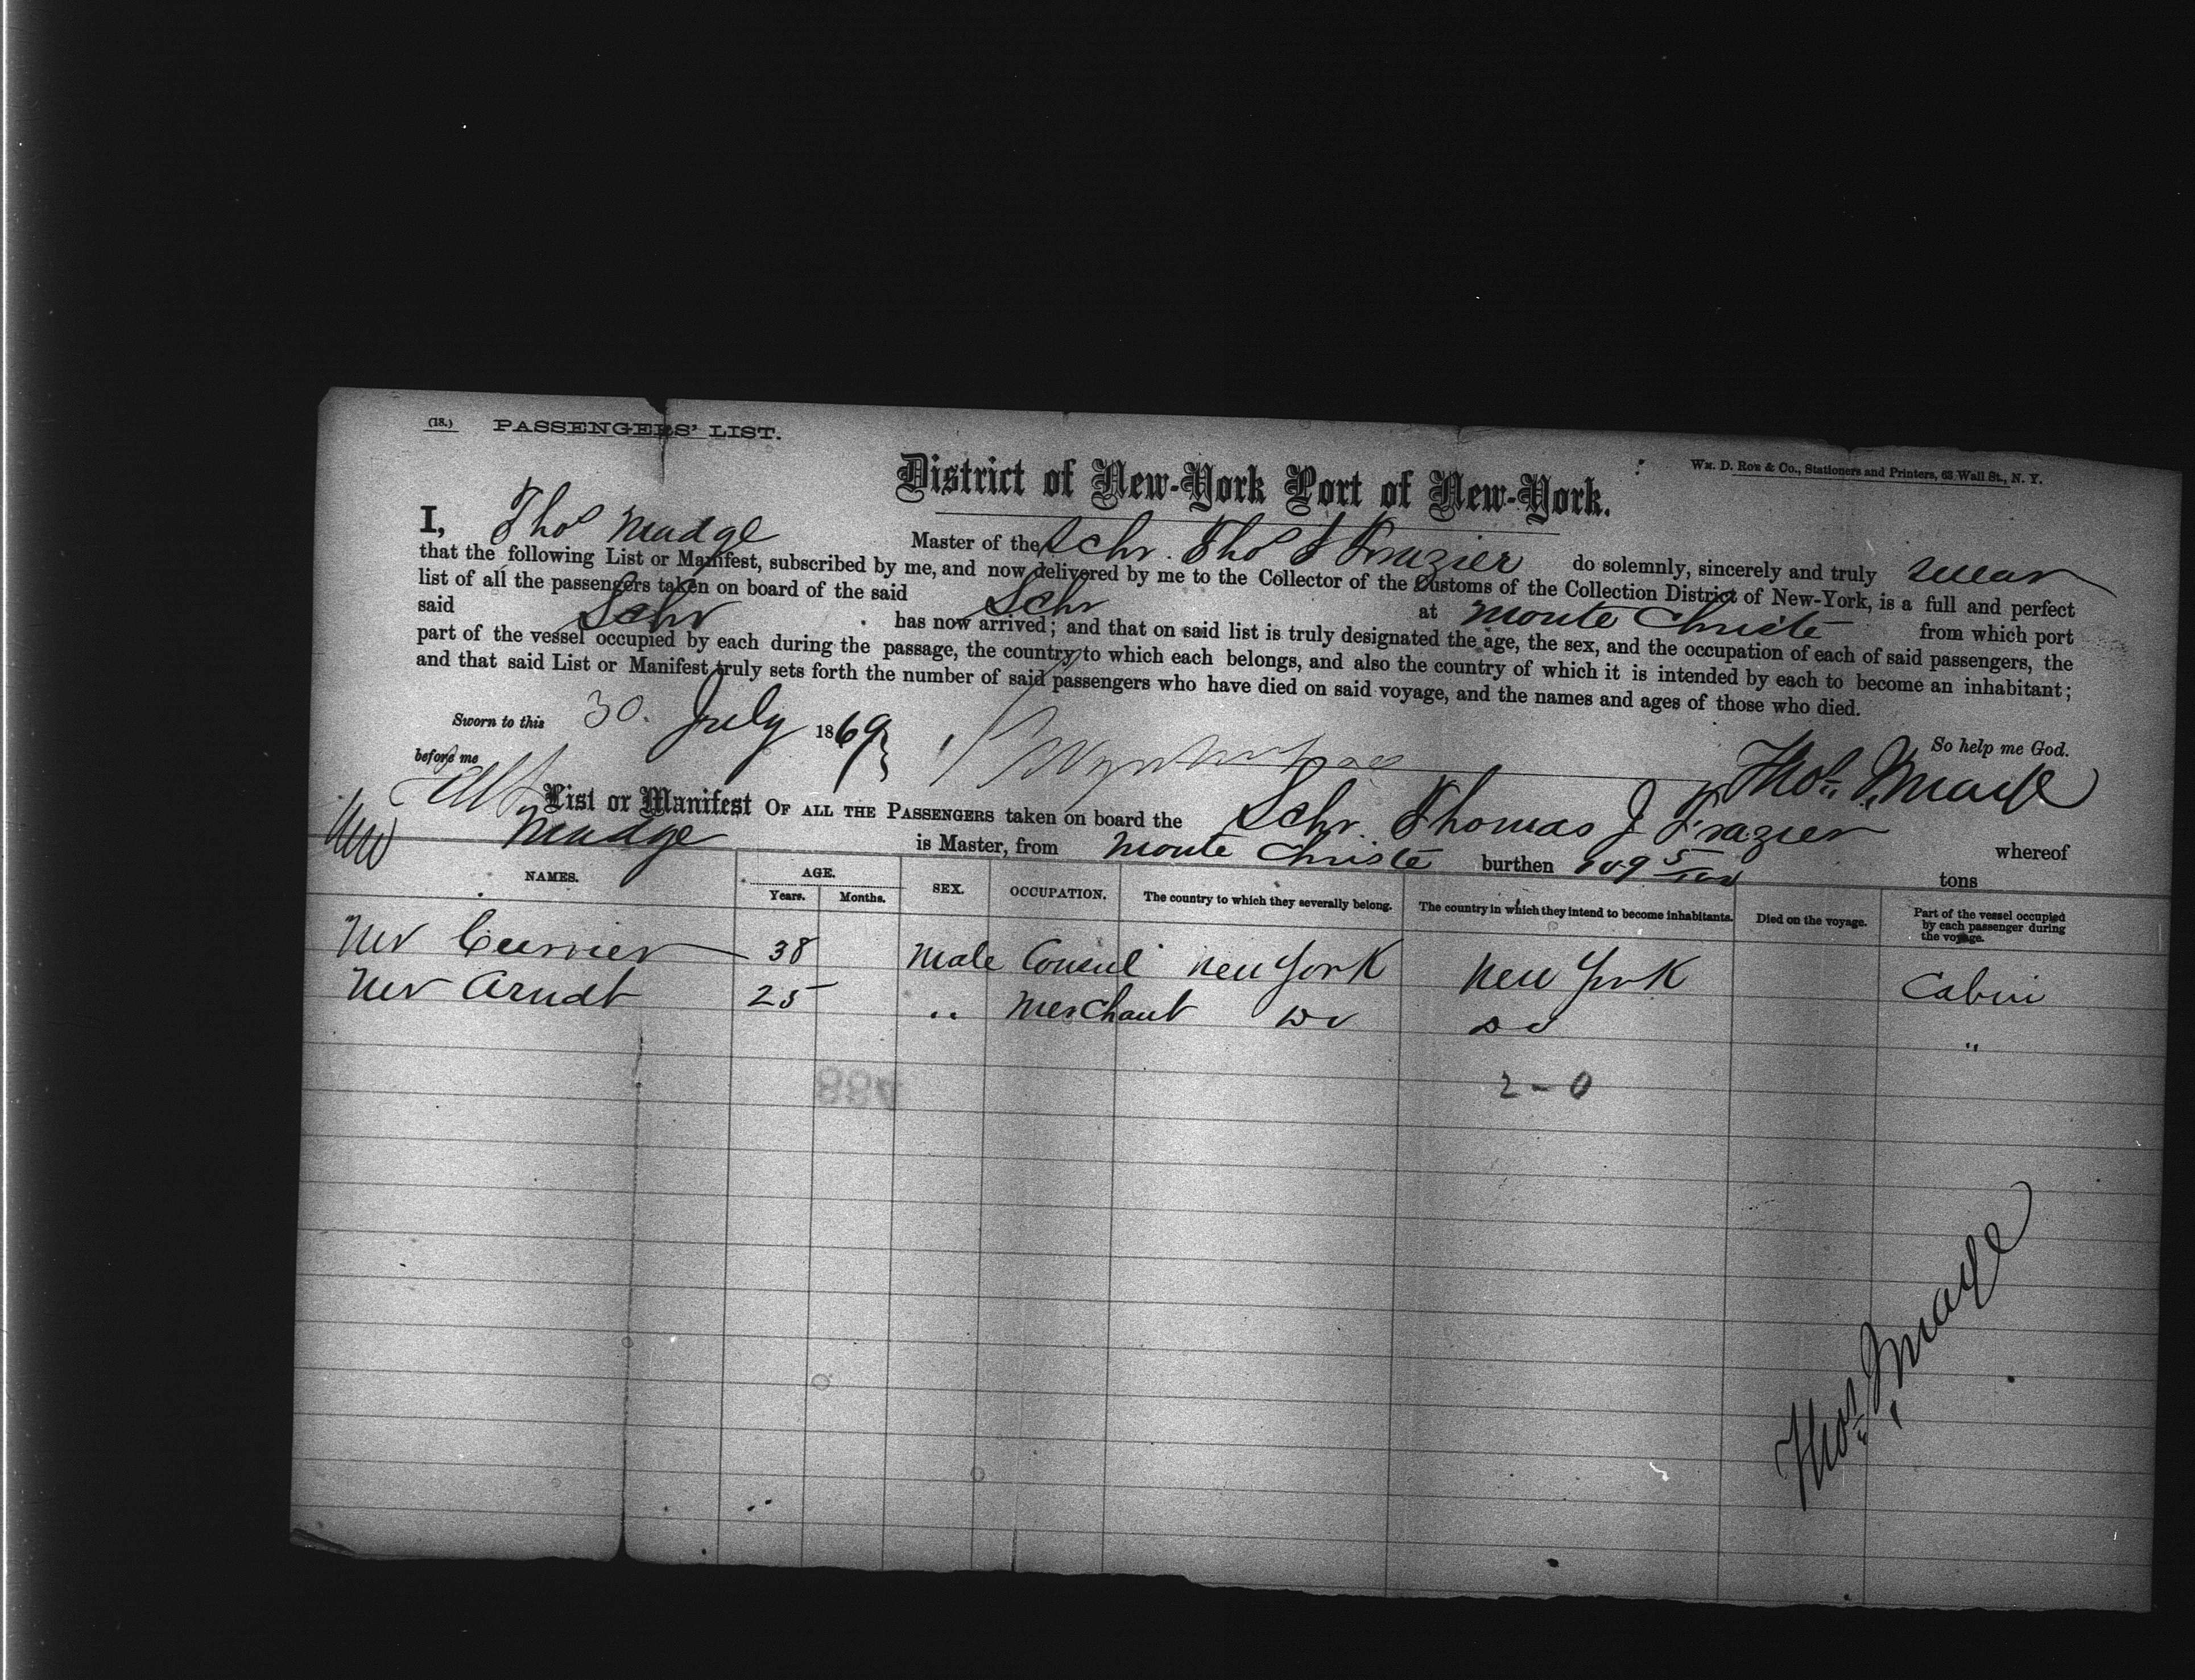 (18.) PASSENGERS' LIST.
Wm. D. Roe & Co., Stationers and Printers, 63 Wall St., N. Y.
District of New-York Port of New-York.
I, Thos Mudge Master of the Schr. Thos J Frazier do solemnly, sincerely and truly swear
that the following List or Manifest, subscribed by me, and now delivered by me to the Collector of the Customs of the Collection District of New-York, is a full and perfect
list of all the passengers taken on board of the said Schr at Monte Christe from which port
said Schr has now arrived; and that on said list is truly designated the age, the sex, and the occupation of each of said passengers, the
part of the vessel occupied by each during the passage, the country to which each belongs, and also the country of which it is intended by each to become an inhabitant;
and that said List or Manifest truly sets forth the number of said passengers who have died on said voyage, and the names and ages of those who died.
So help me God.
Sworn to this 30. July 1869
before me
Thos. Mudge
List or Manifest OF ALL THE PASSENGERS taken on board the Schr. Thomas J Frazier whereof
Mudge is Master, from Monte Christe burthen 109 5/100 tons
NAMES. AGE. SEX. OCCUPATION. The country to which they severally belong. The country in which they intend to become inhabitants. Died on the voyage. Part of the vessel occupied by each passenger during the voyage.
Years. Months.
Mr Currier 38 Male Consul New York New York Cabin
Mr Arndt 25 " Merchant Do Do "
2 - 0
488
Thos. Mudge